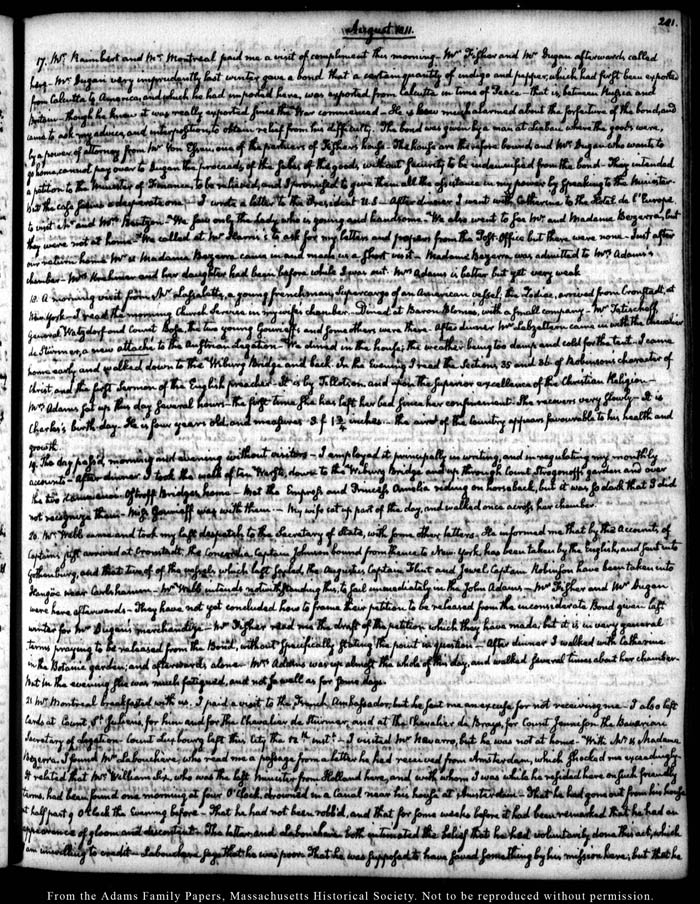 August 1811.
241.
17. Mr. Raimbert and Mr. Montreal paid me a visit of compliment this morning. Mr. Fisher and Mr. Dugan afterwards called
here. Mr. Dugan very imprudently last winter gave a bond that a certain quantity of indigo and pepper, which had first been exported
from Calcutta to America, and which he had imported here, was exported from Calcutta in time of Peace — that is, between Russia and
Britain — though he knew it was really exported since the War commenced — He is now much alarmed about the forfeiture of the bond, and
came to ask my advice, and interposition, to obtain relief from his difficulty. The bond was given by a man at where the goods were,
by a power of attorney from Mr. Von , one of the partners of Fisher's house. The house are therefore bound and Mr. Dugan who wants to
go home, cannot pay over to Dugan the proceeds of the sales of the goods, without security to be indemnified from the bond — They intended
a petition to the Minister of Finance, to be relieved, and I promised to give them all the assistance in my power by speaking to the Minister —
but the case seems a desperate one — I wrote a letter to the President U.S. — After dinner I went with Catherine to the Hotel de l'Europe,
to visit Mr. and Mrs. Bentzon — We saw only the Lady who is young and handsome — We also went to see Mr. and Madame Bezerra, but
they were not at home — We called at Mr. Harris's to ask for my letters and papers from the Post-Office but there were none — Just after
our return home Mr. & Madame Bezerra came in and made us a short visit — Madame Bezerra was admitted to Mrs. Adams's
chamber — Mrs. Krehmer and her daughter had been before while I was out. Mrs. Adams is better but yet very weak
18. A morning visit from Mr. , a young frenchman, Supercargo of an American vessel, the , arrived from Cronstadt, at
New-York — I read the morning Church Service in my wife's chamber — Dined at Baron Blome's, with a small company — Mr. Tatischoff,
General Watzdorf and Count Bose, the two young and some others were there. After dinner Mr. Lebzeltern came in with the Chevalier
de Sturmer, a new attaché to the Austrian Legation — We dined in the house; the weather being too damp and cold for the tent. I came
home early and walked down to the Wiburg Bridge and back. In the Evening I read the Sections 35 and 36 of Robinson's character of
Christ, and the first Sermon of the English preacher — It is by Tillotson, and upon the superior excellence of the Christian Religion —
Mrs. Adams sat up this day several hours — the first time she has left her bed since her confinement. She recovers very slowly — It is
Charles's birth day. He is four years old, and measures 3 f inches — the air of the Country appears favourable to his health and
growth.
19. The day passed, morning and evening without visitors — I employed it principally in writing, and in regulating my monthly
accounts — After dinner I took the walk of ten Wersts, down to the Wiburg Bridge and up through Count Strogonoff's gardens and over
the two Kammenoi Ostroff Bridges, home — Met the Empress and Princess Amelia riding on horseback, but it was so dark that I did
not recognize them — Miss was with them — My wife sat up part of the day, and walked once across her chamber.
20. Mr. Webb came and took my last despatch to the Secretary of State, with some other letters. He informed me that by the Accounts of
Captains just arrived at Cronstadt, the Concordia Captain Johnson bound from thence to New York, has been taken by the English, and sent into
Gothenburg, and that two of the vessels which left , the Augustus Captain Flint and Jewel Captain Robinson have been taken into
near Carlshamn — Mr. Webb intends notwithstanding this, to sail immediately in the John Adams — Mr. Fisher and Mr. Dugan
were here afterwards — They have not yet concluded how to frame their petition to be released from the inconsiderate Bond given last
winter for Mr. Dugan's merchandize — Mr. Fisher read me the draft of the petition which they have made, but it is in very general
terms praying to be released from the Bond, without specifically stating the point in question — After dinner I walked with Catherine
in the Botanic garden, and afterwards alone — Mrs. Adams was up almost the whole of this day, and walked several times about her chamber —
but in the evening she was much fatigued, and not so well as for some days.
21. Mr. Montreal breakfasted with us. I paid a visit to the French Ambassador, but he sent me an excuse for not receiving me — I also left
Cards at Count St. Julien's, for him and for the Chevalier de Sturmer, and at the Chevalier de Bray's, for Count Jennison the Bavarian
Secretary of Legation. Count Luxbourg left this City the 12th. instt. — I visited Mr. Navarro, but he was not at home — With Mr. & Madame
Bezerra, I found Mr. Labouchere, who read me a passage from a letter he had received from Amsterdam, which shocked me exceedingly.
It related that Mr. William Six, who was the last Minister from Holland here, and with whom I was while he resided here on such friendly
terms, had been found one morning at four O'Clock, drowned in a Canal near his house at Amsterdam — That he had gone out from his house
at half past 9 O'Clock the Evening before — That he had not been robb'd, and that for some weeks before it had been remarked that he had an
appearance of gloom and discontent — The letter, and Labouchere both intimated the belief that he had voluntarily done this act, which
I am unwilling to credit — Labouchere says that he was poor. That he was supposed to have saved something by his mission here; but that he
From the Adams Family Papers, Massachusetts Historical Society. Not to be reproduced without permission.